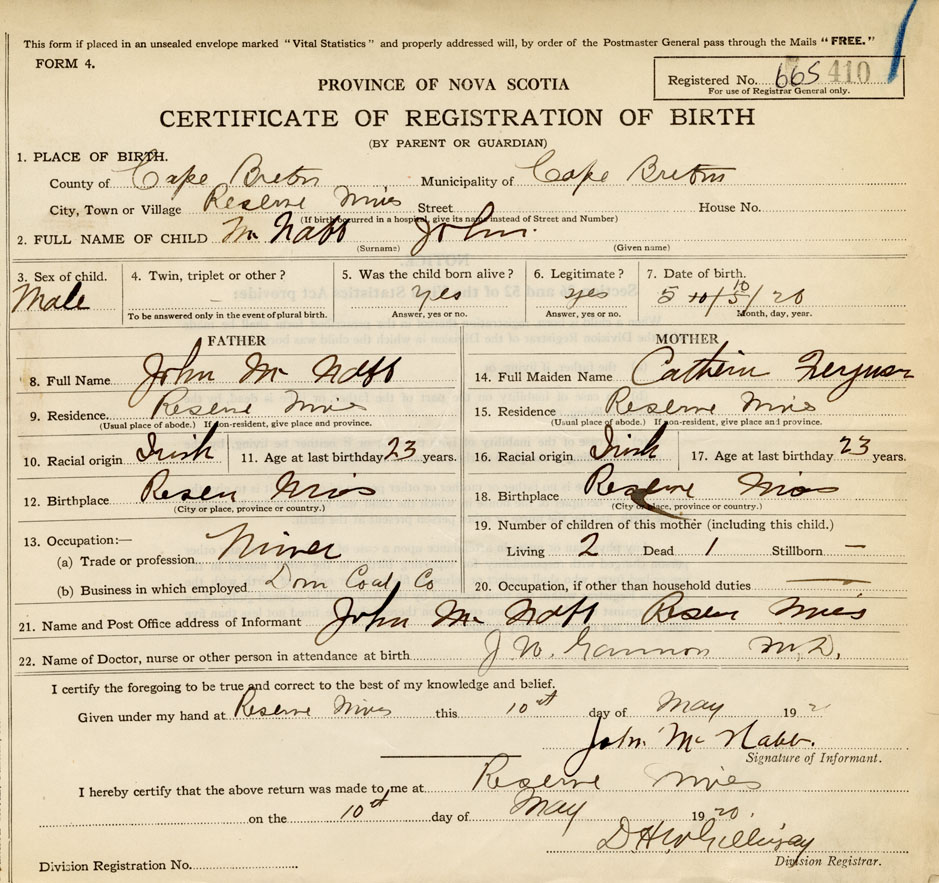 This form if placed in an unsealed envelope marked "Vital Statistics" and properly addressed will, by order of the Postmaster General pass through the Mails "FREE."
FORM 4.
Registered No. 665 410
For use of Registrar General only.
PROVINCE OF NOVA SCOTIA
CERTIFICATE OF REGISTRATION OF BIRTH
(BY PARENT OR GUARDIAN)
1. PLACE OF BIRTH.
County of Cape Breton Municipality of Cape Breton
City, Town or Village Reserve Mines Street House No.
(If birth occurred in a hospital, give its name instead of Street and Number)
2. FULL NAME OF CHILD Mc Nabb John
(Surname) (Given name)
3. Sex of child. 4. Twin, triplet or other? 5. Was the child born alive? 6. Legitimate? 7. Date of birth.
Male – yes yes 5 10/5/20
To be answered only in the event of plural birth. Answer, yes or no. Answer, yes or no. Month, day, year.
FATHER MOTHER
8. Full Name John Mc Nabb 14. Full Maiden Name Catherin Ferguson
9. Residence. Reserve Mines 15. Residence Reserve Mines
(Usual place of abode.) If non-resident, give place and province. (Usual place of abode.) If non-resident, give place and province.
10. Racial origin Irish 11. Age at last birthday 23 years. 16. Racial origin Irish 17. Age at last birthday 23 years.
12. Birthplace Reser Mines 18. Birthplace Reserve Mines
(City or place, province or country.) (City or place, province or country.)
19. Number of children of this mother (including this child.)
13. Occupation:—
(a) Trade or profession Miner Living 2 Dead 1 Stillborn —
(b) Business in which employed Dom Coal Co 20. Occupation, if other than household duties —
21. Name and Post Office address of Informant John Mc Nabb Reser Mines
22. Name of Doctor, nurse or other person in attendance at birth J W. Gannon M.D.
I certify the foregoing to be true and correct to the best of my knowledge and belief.
Given under my hand at Reserve Mines this 10th day of May 192
John Mc Nabb.
Signature of Informant.
I hereby certify that the above return was made to me at Reserve Mines
on the 10th day of May 1920.
D H McGillivray
Division Registrar.
Division Registration No.